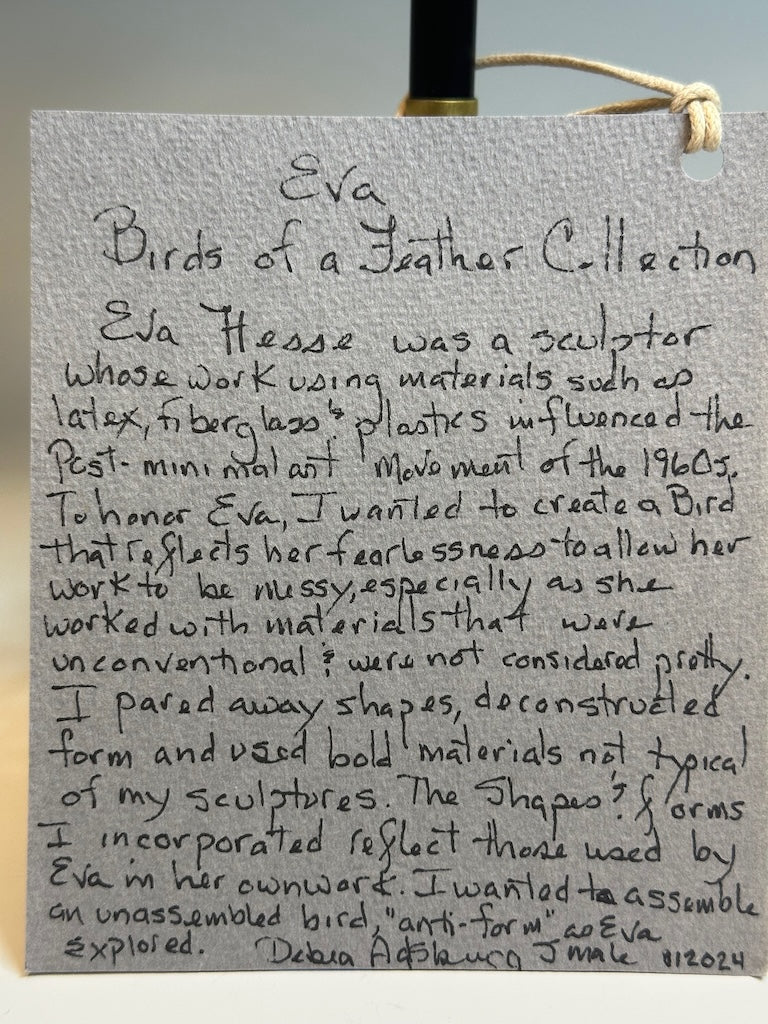 Eva
Birds of a Feather Collection
Eva Hesse was a sculptor
whose work using materials such as
latex, fiberglass & plastics influenced the
Post-minimal art movement of the 1960s.
To honor Eva, I wanted to create a Bird
that reflects her fearlessness to allow her
work to be messy, especially as she
worked with materials that were
unconventional & were not considered pretty.
I pared away shapes, deconstructed
form and used bold materials not typical
of my sculptures. The Shapes & forms
I incorporated reflect those used by
Eva in her own work. I wanted to assemble
an unassembled bird, "anti-form" as Eva
explored. Debra 2024